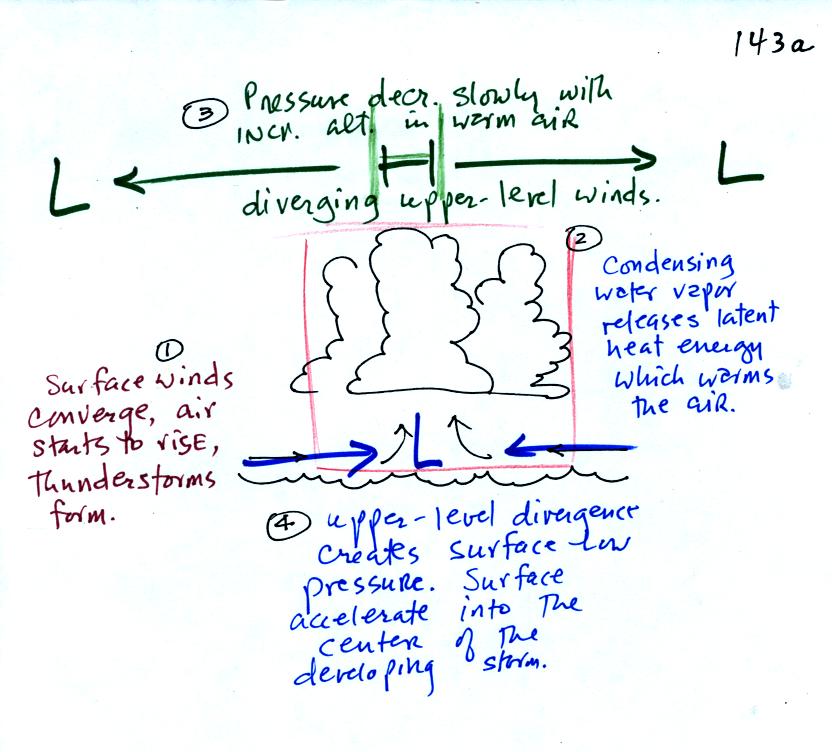 143a
③ Pressure decr. slowly with
incr. alt. in warm air
L H L
diverging upper-level winds.
②
Condensing
water vapor
releases latent
heat energy
which warms
the air.
①
Surface winds
converge, air
starts to rise,
thunderstorms
form.
L
④ upper-level divergence
creates surface low
pressure. Surface
accelerate into the
center of the
developing storm.